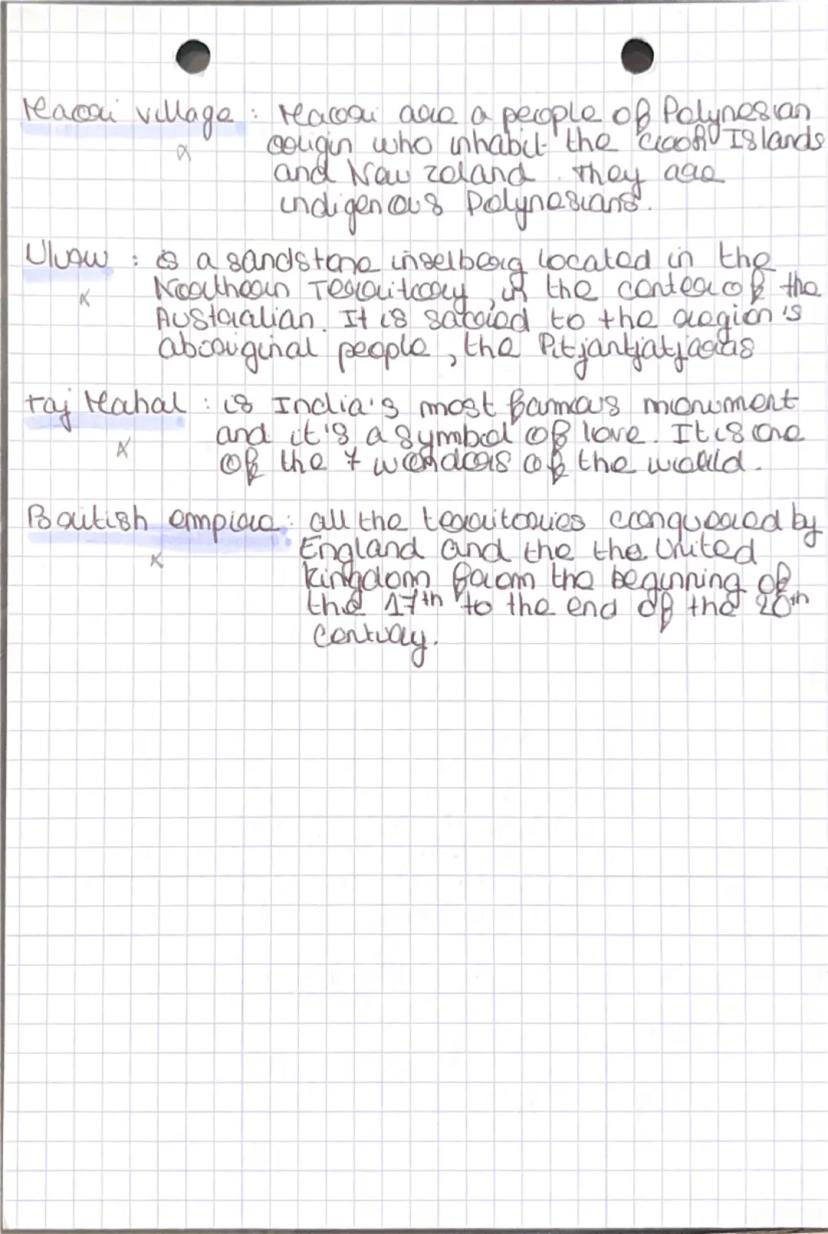 Maori village : Maori are a people of Polynesian
origin who inhabit the Cook Islands
and New Zeland. They are
indigenous Polynesians.
Uluru : is a sandstone inselberg located in the
Northern Territory, in the center of the
Australian. It is sacred to the region's
aboriginal people, the Pitjantjatjaras
Taj Mahal : is India's most famous monument
and it's a symbol of love. It is one
of the 7 wonders of the world.
British empire : all the territories conquered by
England and the the United
Kingdom from the beginning of
the 17th to the end of the 20th
century.